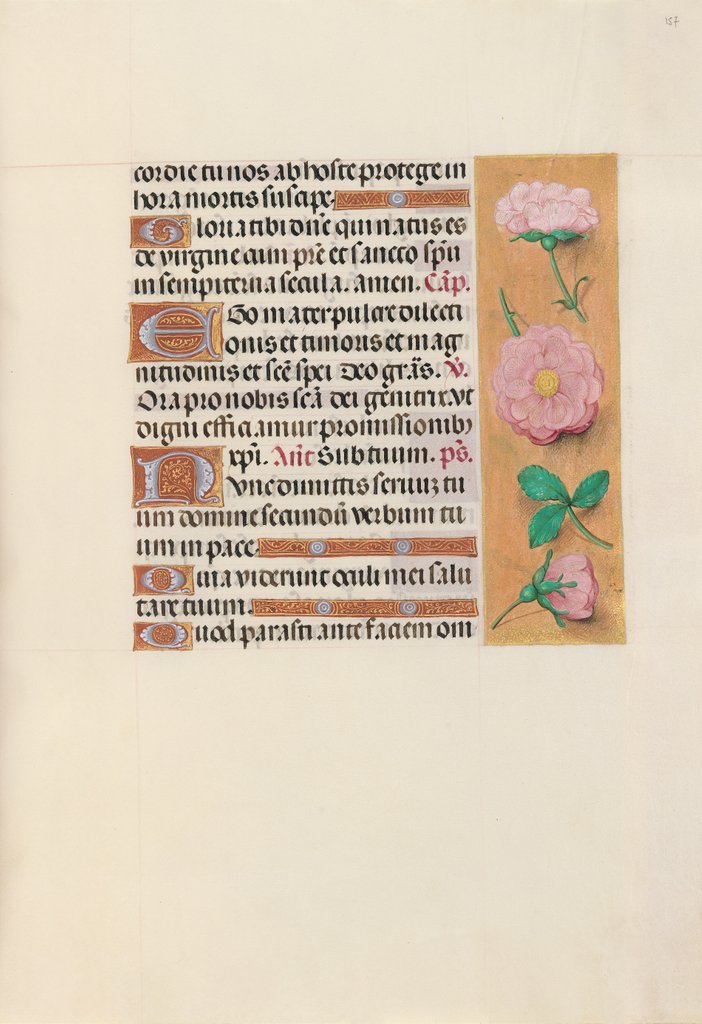 157
cordie tu nos ab hoste protege in
hora mortis suscipe.
Gloria tibi dñe qui natus es
de virgine cum p̃re et sancto sp̃u
in sempiterna secula. amen. Cap̃.
Ego mater pulcre dilecti
onis et timoris et mag
nitudinis et scẽ spei Deo grãs. V̉.
Ora pro nobis scã dei genitrix. vt
digni efficiamur promissionibꝰ
xp̃i. Añt Sub tuum. ps̃.
Nunc dimittis seruuꝫ tu
um domine secundũ verbum tu
um in pace.
Quia viderunt oculi mei salu
tare tuum.
Quod parasti ante faciem om